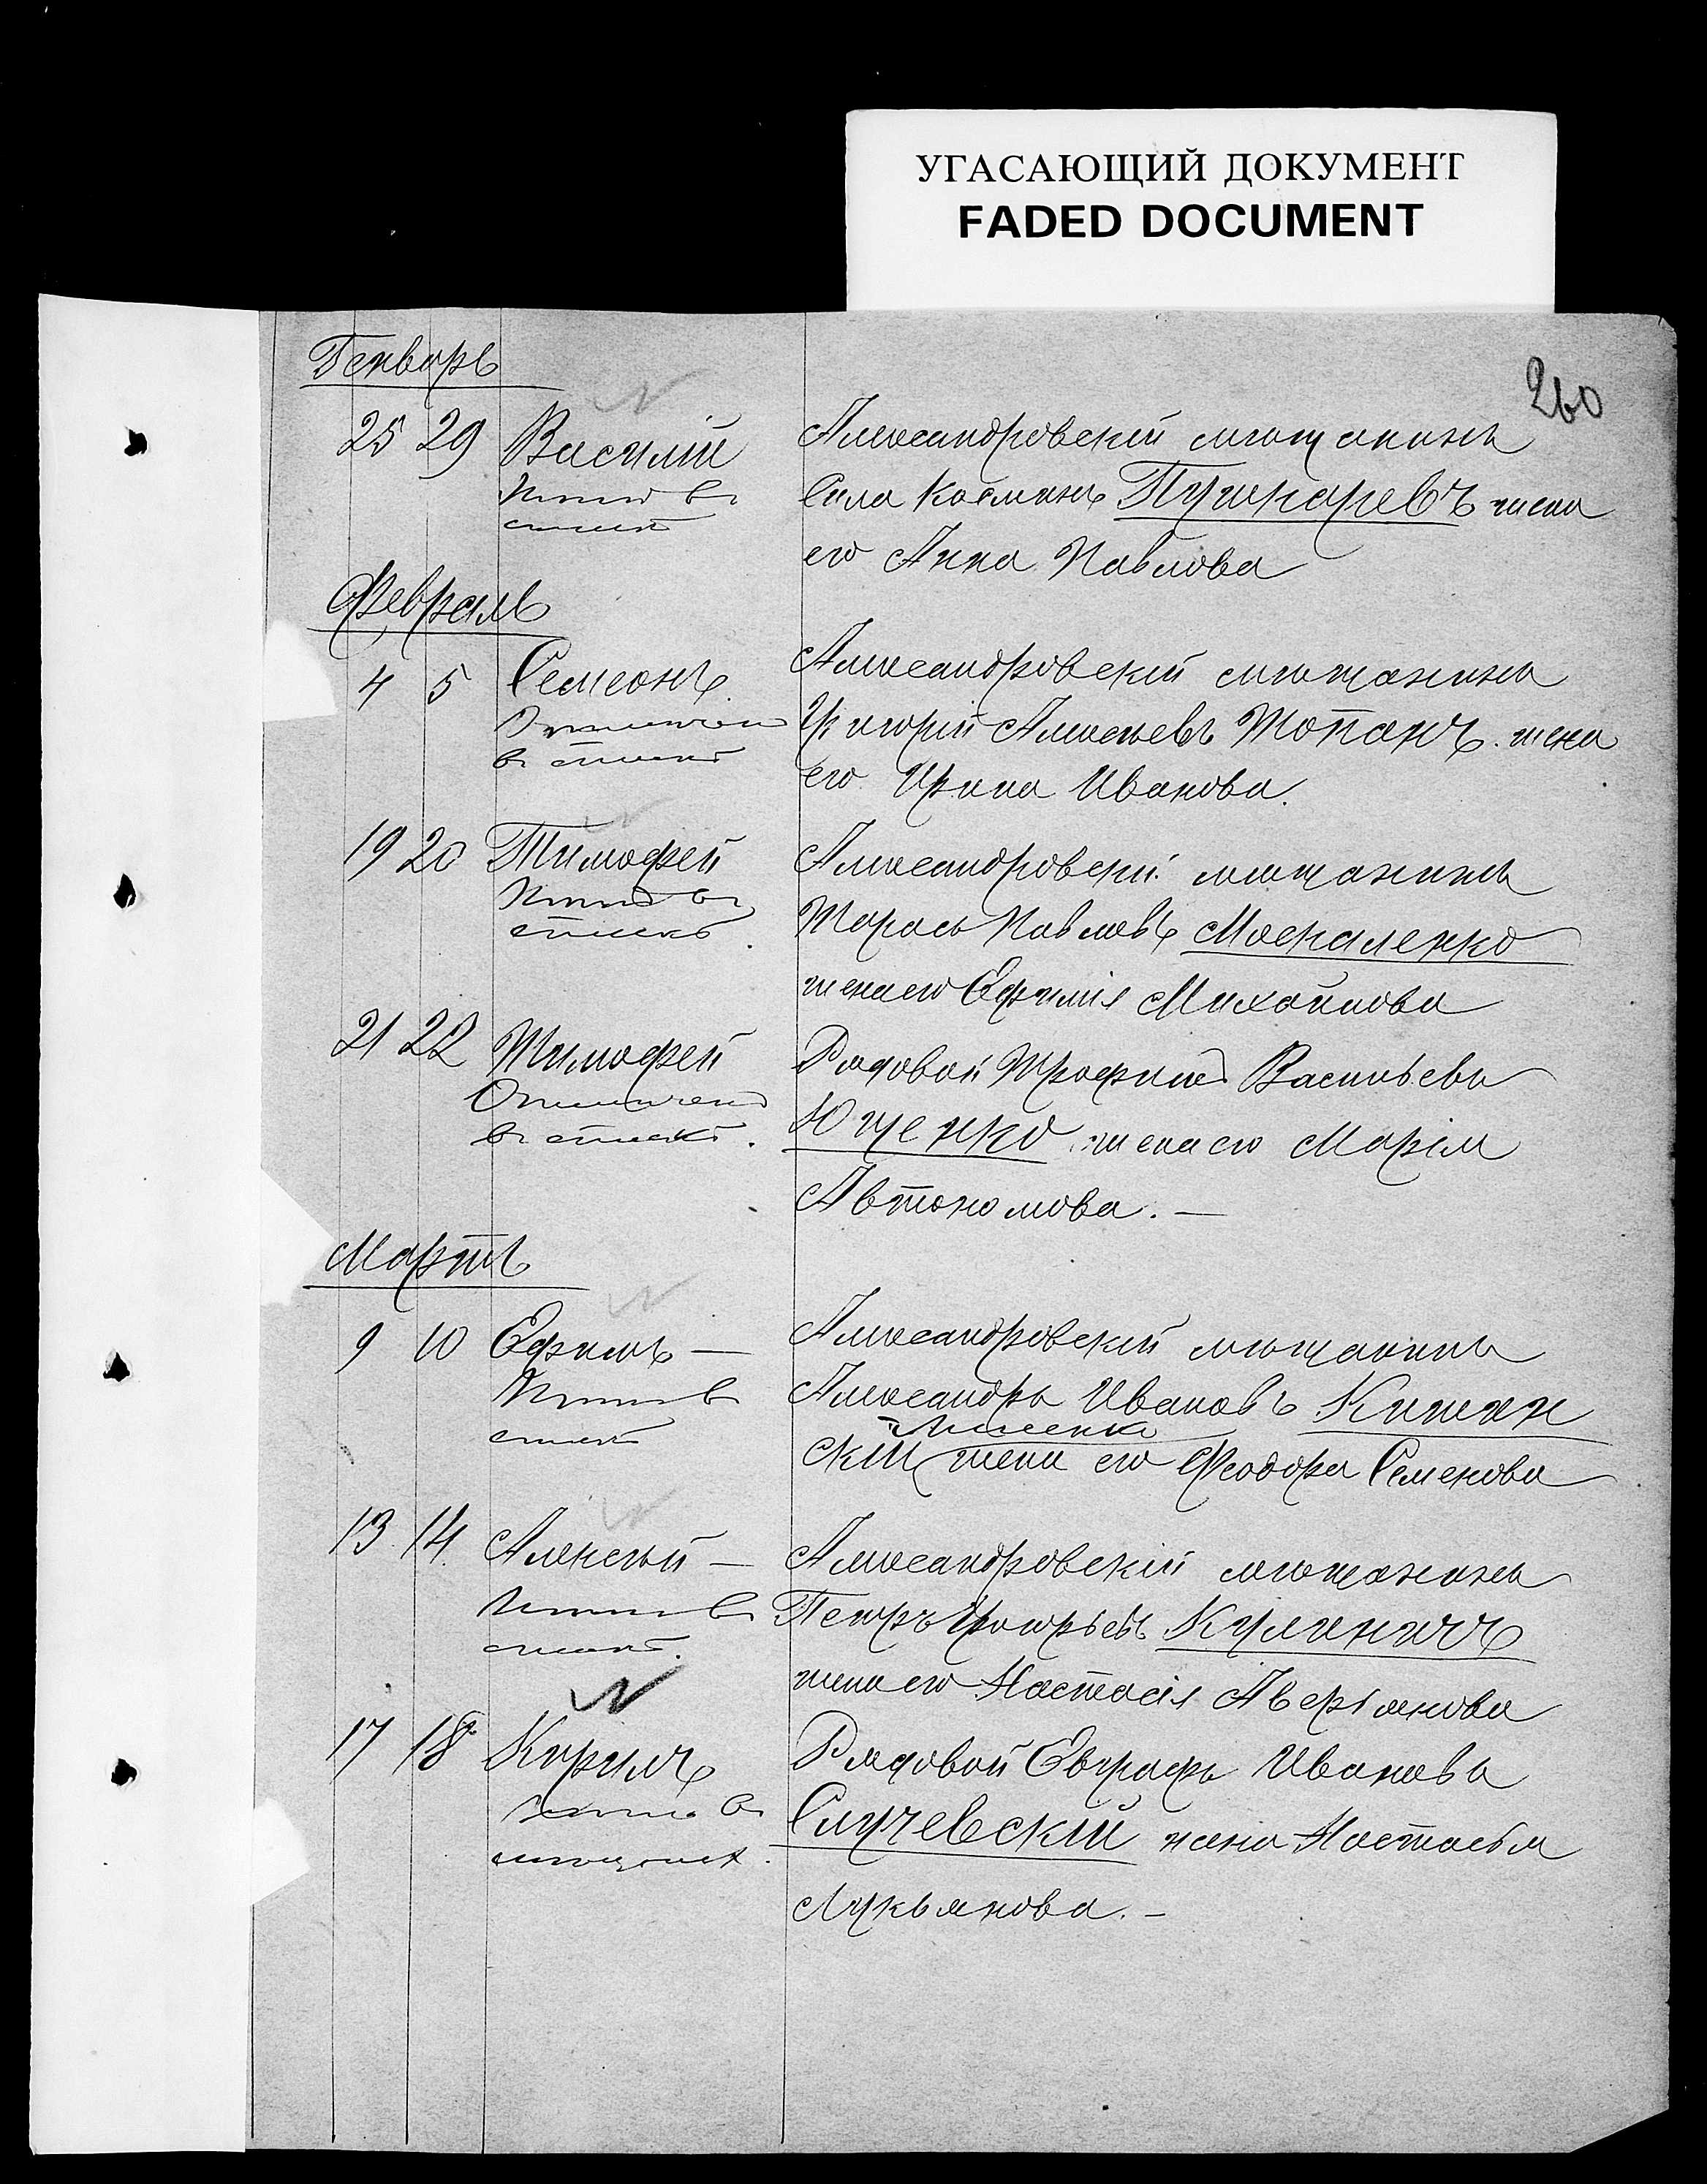 УГАСАЮЩИЙ ДОКУМЕНТ
FADED DOCUMENT
260
Генварь
25 29 Василій Александровскій мѣщанинъ
Сила Косминъ Пушкаревъ жена
его Анна Павлова
Февраль
4 5 Семеонъ Александровскій мѣщанинъ
Григорій Алексѣевъ Топанъ. жена
его Ирина Иванова.
19 20 Тимофей Александровскій мѣщанинъ
Тарасъ Павловъ Москаленко
жена его Ефимія Михайлова
21 22 Тимофей Рядовой Трофимъ Васильевъ
въ списке. Ющенко, жена его Марія
Автономова. —
Мартъ
9 10 Ефимъ — Александровскій мѣщанинъ
Александръ Ивановъ Кишин
скій жена его Феодора Семенова
13 14 Алексѣй — Александровскій мѣщанинъ
Петръ Григорьевъ Кулиничъ
жена его Настасія Аверіянова
17 18 Кирилъ Рядовой Евграфъ Ивановъ
Случевскій жена Настасья
Лукьянова. —